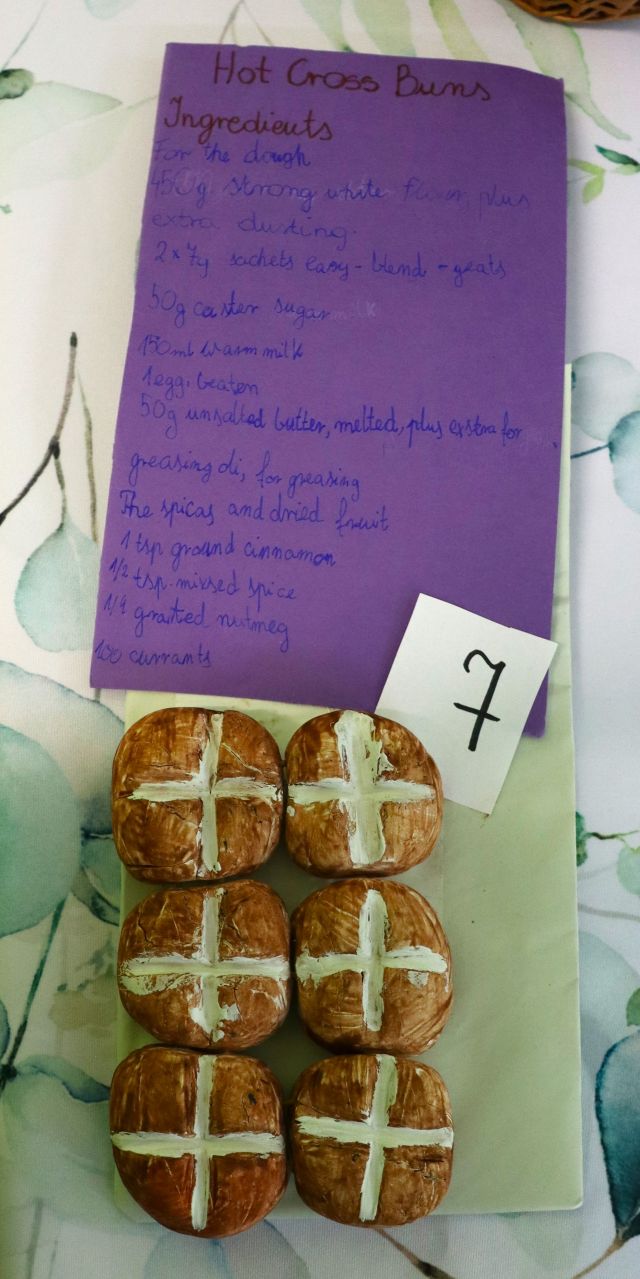 Hot Cross Buns
Ingredients
For the dough
450g strong white flour, plus
extra dusting.
2 x 7g sachets easy-blend-yeats
50g caster sugar
150ml warm milk
1 egg, beaten
50g unsalted butter, melted, plus exstra for
greasing di, for greasing
The spicas and dried fruit
1 tsp ground cinnamon
1/2 tsp mixsed spice
1/4 graited nutmeg
100 currants
7